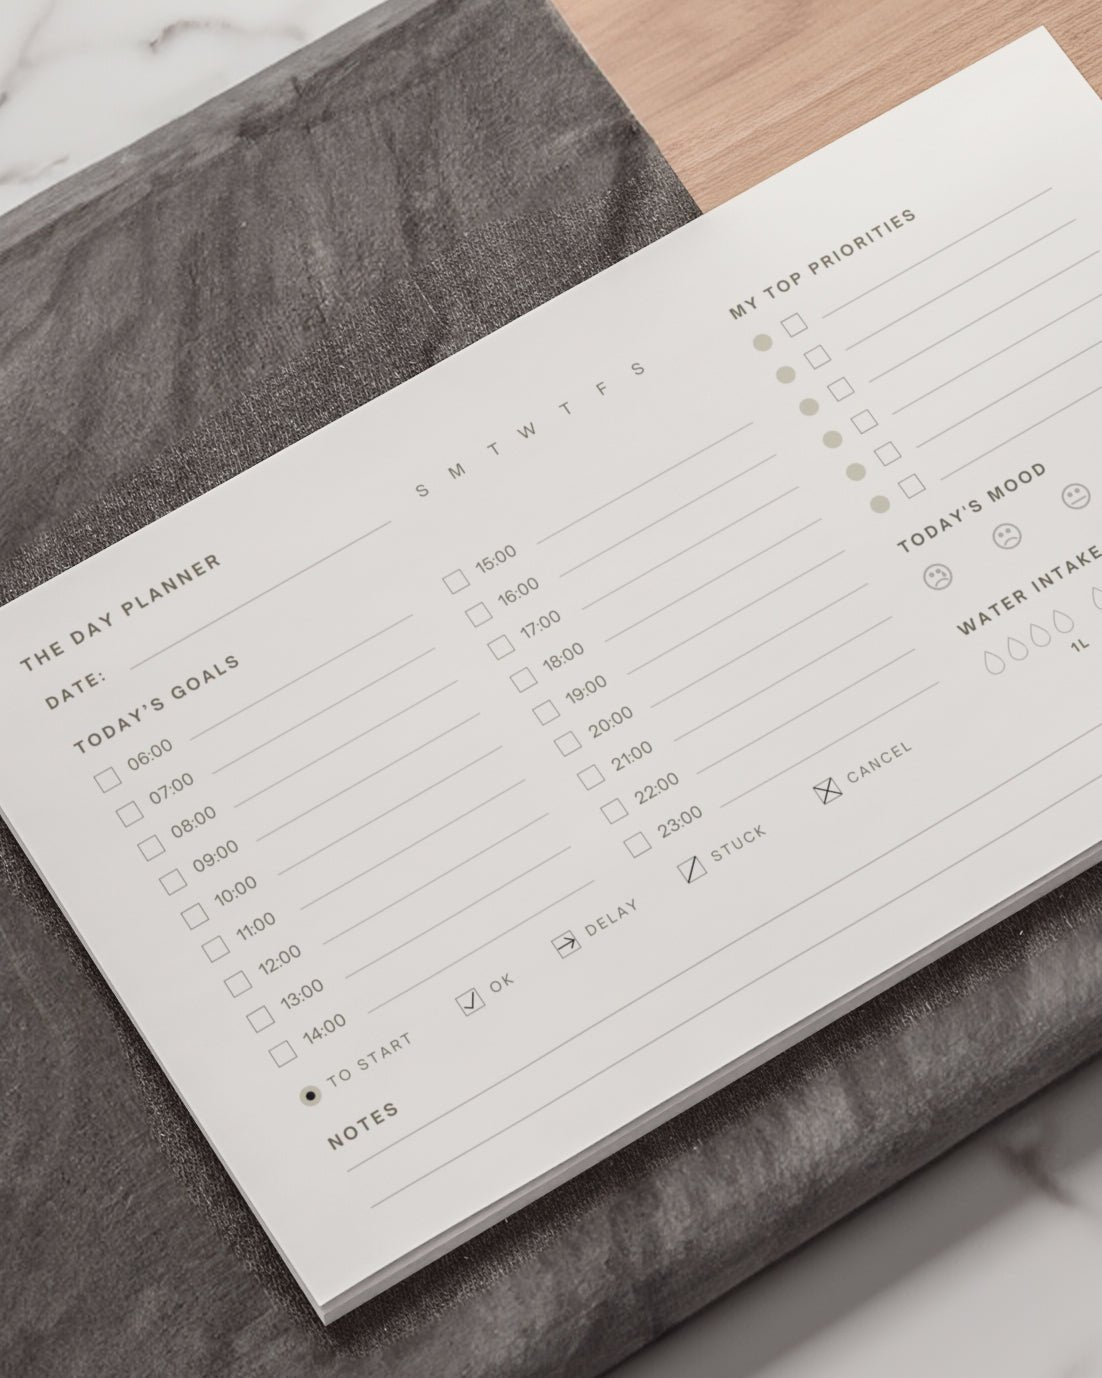 THE DAY PLANNER
DATE:
S M T W T F S
TODAY'S GOALS
06:00
07:00
08:00
09:00
10:00
11:00
12:00
13:00
14:00
15:00
16:00
17:00
18:00
19:00
20:00
21:00
22:00
23:00
TO START
OK
DELAY
STUCK
CANCEL
NOTES
MY TOP PRIORITIES
TODAY'S MOOD
WATER INTAKE
1L